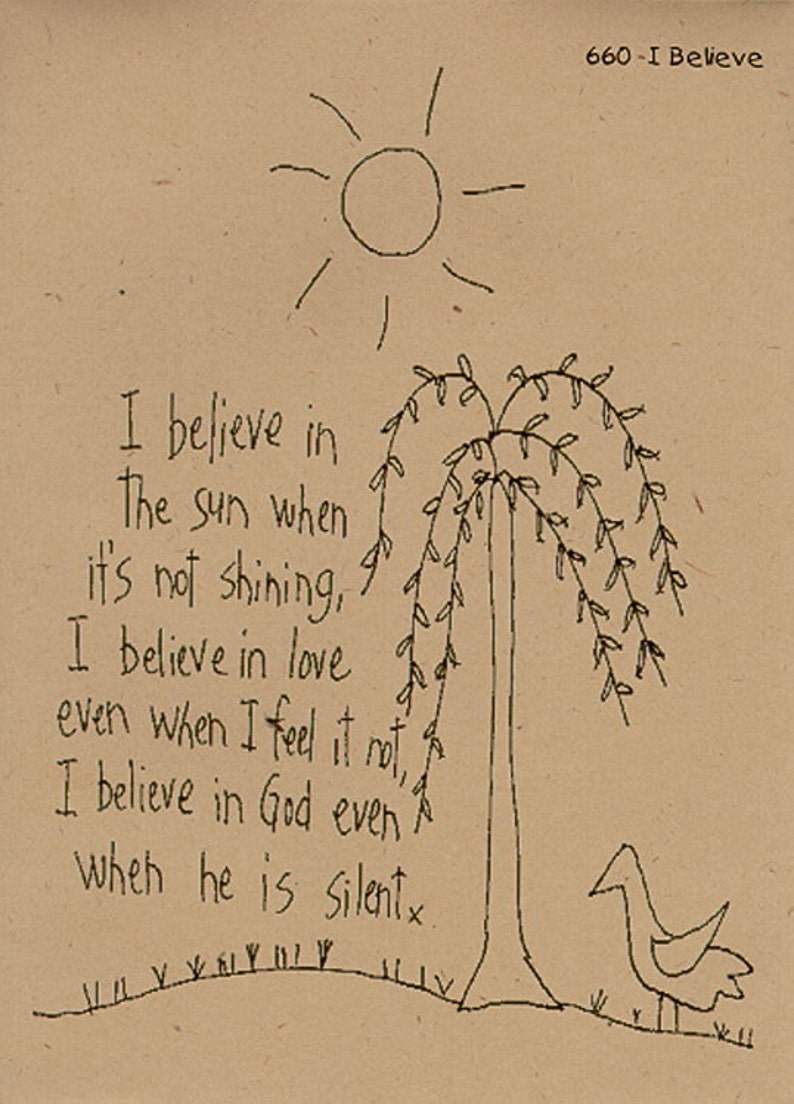 660 - I Believe
I believe in
the sun when
it's not shining,
I believe in love
even when I feel it not,
I believe in God even
when he is silent.x